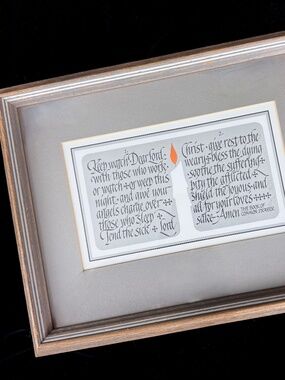 Keep watch · Dear Lord ·
with those who work ·
or watch · or weep this
night · and give your
angels charge over
those who sleep
Tend the sick + lord
Christ · give rest to the
weary · bless the dying
soothe the suffering
pity the afflicted +
shield the joyous · and
all for your love's
sake · Amen THE BOOK OF
COMMON PRAYER